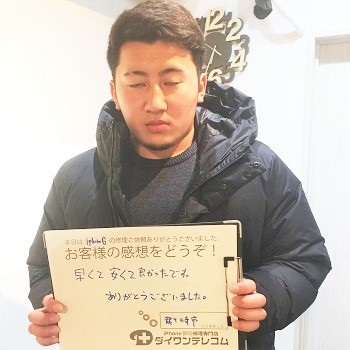 12
2
4
本日は iphone6 の修理ご依頼ありがとうございました。
お客様の感想をどうぞ！
早くて安くて良かったです
ありがとうございました。
iPhone 即日修理専門店
ダイワンテレコム